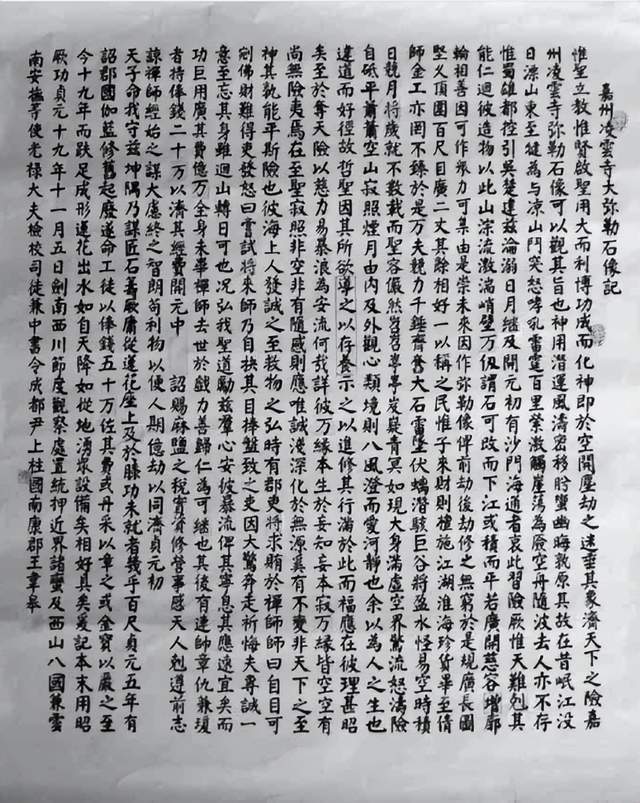 嘉州凌雲寺大弥勒石像記
惟聖立教惟賢啟聖用大而利博功成而化神即於空開塵劫之迷垂其象濟天下之險嘉
州凌雲寺弥勒石像可以觀其旨也神用潛運風濤密移肹蠁幽晦孰原其故在昔岷江没
日漂山東至犍為与凉山鬥突怒哮吼雷霆百里縈激觸崖蕩為險空舟隨波去人亦不存
惟蜀雄都控引吳楚建兹淪溺日月繼及開元初有沙門海通者哀此習險厥惟天難剋其
能仁迴彼造物以此山淙流激湍峭壁万仭謂石可改而下江或積而平若廣開慈容增廓
輪相善因可作眾力可集由是崇未來因作弥勒像俾前劫後劫修之無窮於是規廣長圖
堅久頂圍百尺目廣二丈其餘相好一以稱之民惟子來財則檀施江湖淮海珍貨畢至僝
師金工亦罔不臻於是万夫競力千錘齊奮大石雷墜伏螭潛駭巨谷將盈水怪易空時積
日競月將歲就不數載而聖容儼然岧岧亭亭岌嶷青冥如現大身滿虛空界驚流怒濤險
自砥平蕭蕭空山寂照烟月由內及外觀心類境則八風澄而愛河靜也余以為人之生也
違道而好徑故哲聖因其所欲導之以存養示之以進修其行滿於此而福應在彼理甚昭
矣至於奪天險以慈力易暴浪為安流何哉詳彼万緣本生於妄知妄本寂万緣皆空空有
尚無險夷焉在至聖寂照非空非有隨感則應唯誠淺深化於無源奚有不變非天下之至
神其孰能平斯險也彼海上人發誠之至救物之弘時有郡吏將求賄於禪師師曰自目可
剜佛財難得吏發怒曰嘗試將來師乃自抉其目捧盤致之吏因大驚奔走祈悔夫專誠一
意至忘其身雖迴山轉日可也况弘我聖道勵兹羣心安彼暴流俾其寧息其應速宜矣而
功巨用廣其費億万全身未畢禪師去世於戲力善歸仁為可繼也其後有連帥章仇兼瓊
者持俸錢二十万以濟其經費開元中 詔賜麻鹽之稅實資修營事感天人剋遵前志
諒禪師經始之謀大慮終之智朗苟利物以便人期億劫以同濟貞元初
天子命我守兹坤隅乃謀匠石籌厥庸從蓮花座上及於膝功未就者幾乎百尺貞元五年有
詔郡國伽藍修舊起廢遂命工徒以俸錢五十万佐其費或丹采以章之或金寶以嚴之至
今十九年而趺足成形蓮花出水如自天降如從地湧眾設備矣相好具矣爰記本末用昭
厥功貞元十九年十一月五日劍南西川節度觀察處置統押近界諸蠻及西山八國兼雲
南安撫等使光禄大夫檢校司徒兼中書令成都尹上柱國南康郡王韋皋